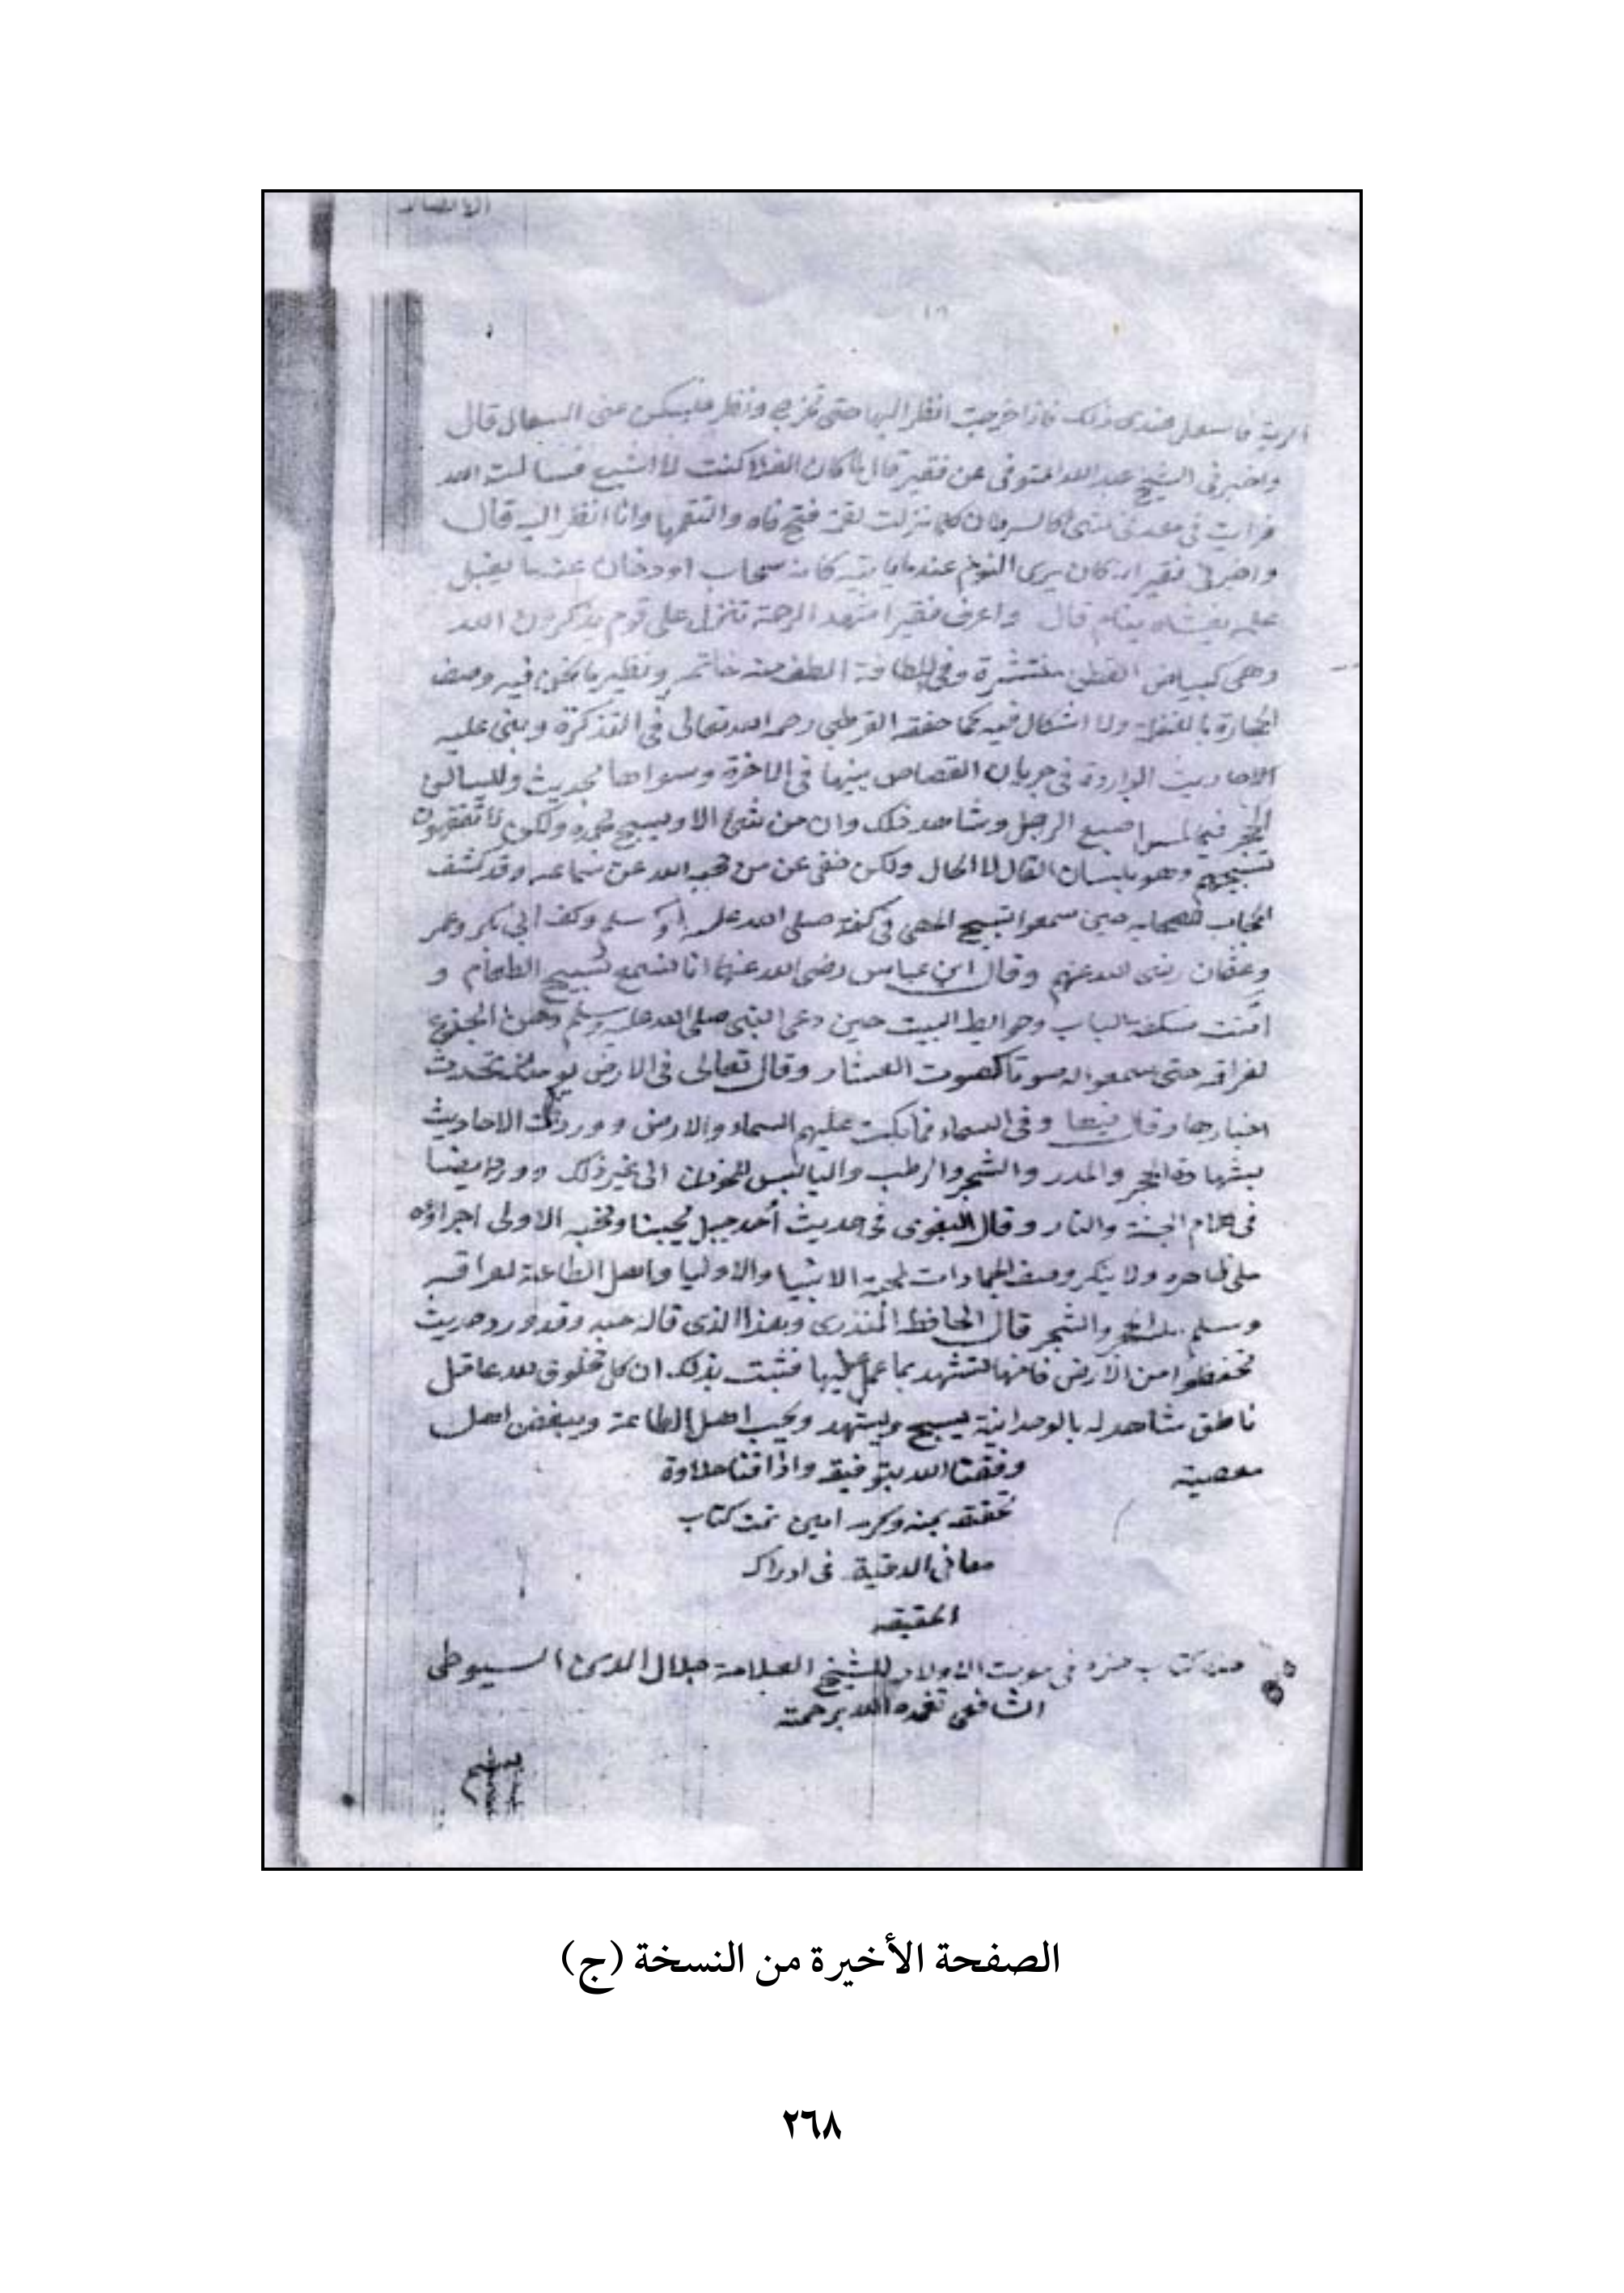 الرية فاسعل عندى ذلك فاذا خرجت انظر اليها حتى تخرج وتظهر فيسكن عنى السعال قال
واخبرنى الشيخ عبد الله المتوفى عن فقير قال لما كان الغلا كنت لا اشبع فسالت الله
فرايت فى معدتى شئ كالسرطان كلما نزلت لقمة فتح فاه والتقمها وانا انظر اليه قال
واخبرنى فقير انه كان يرى النوم عندما ياتيه كانه سحاب او دخان عندما يقبل
عليه يغشاه ينام قال واعرف فقيرا شهد الرحمة تنزل على قوم يذكرون الله
وهى كبياض القطن منتشرة وفى اللطافة الطف منه خاتمه ونظير ما نحن فيه وصف
الحجارة بالعقل ولا اشكال فيه كما حققه القرطبى رحمه الله تعالى فى التذكرة وبنى عليه
الاحاديث الواردة فى جريان القصاص بينها فى الاخرة وسواها بحديث وليسالن
الحجر فيم اصبع الرجل وشاهد ذلك وان من شئ الا ويسبح بحمده ولكن لا تفقهون
تسبيحهم وهو بلسان القال لا الحال ولكن خفى عن من حجبه الله عن سماعه وقد كشف
الحجاب للصحابه حين سمعوا تسبيح الحصى فى كفه صلى الله عليه وسلم وكف ابى بكر وعمر
وعثمان رضى الله عنهم وقال ابن عباس رضى الله عنهما انا لنسمع تسبيح الطعام و
امنت سكفة الباب وحوايط البيت حين دعى النبى صلى الله عليه وسلم وحن الجذع
لفراقه حتى سمعوا له صوتا كصوت العشار وقال تعالى فى الارض يومئذ تحدث
اخبارها وقال فيها وفى السماء فما بكت عليهم السماء والارض ووردت الاحاديث
بشهادة الحجر والمدر والشجر والرطب واليابس للمؤذن الى غير ذلك وورد ايضا
فى كلام الجنة والنار وقال البغوى فى حديث أحد جبل يحبنا ونحبه الاولى اجراؤه
على ظاهره ولا ينكر وصف الجمادات لمحبة الانبيا والاوليا واهل الطاعة
وسلم والشجر قال الحافظ المنذرى وهذا الذى قاله جيد وقد ورد حديث
تحفظوا من الارض فانها لتشهد بما عمل عليها فثبت بذلك ان كل مخلوق لله عاقل
ناطق شاهد له بالوحدانية يسبح ويشهد ويحب اهل الطاعة ويبغض اهل
معصيته وفقنا الله بتوفيقه واذاقنا حلاوة
تحققه بمنه وكرمه امين تمت كتاب
معانى الدقيقة فى ادراك
الحقيقه
هذا كتاب جزء فى موت الاولاد للشيخ العلامة جلال الدين السيوطى
الشافعى تغمده الله برحمته
بسم
الصفحة الأخيرة من النسخة (ج)
٢٦٨